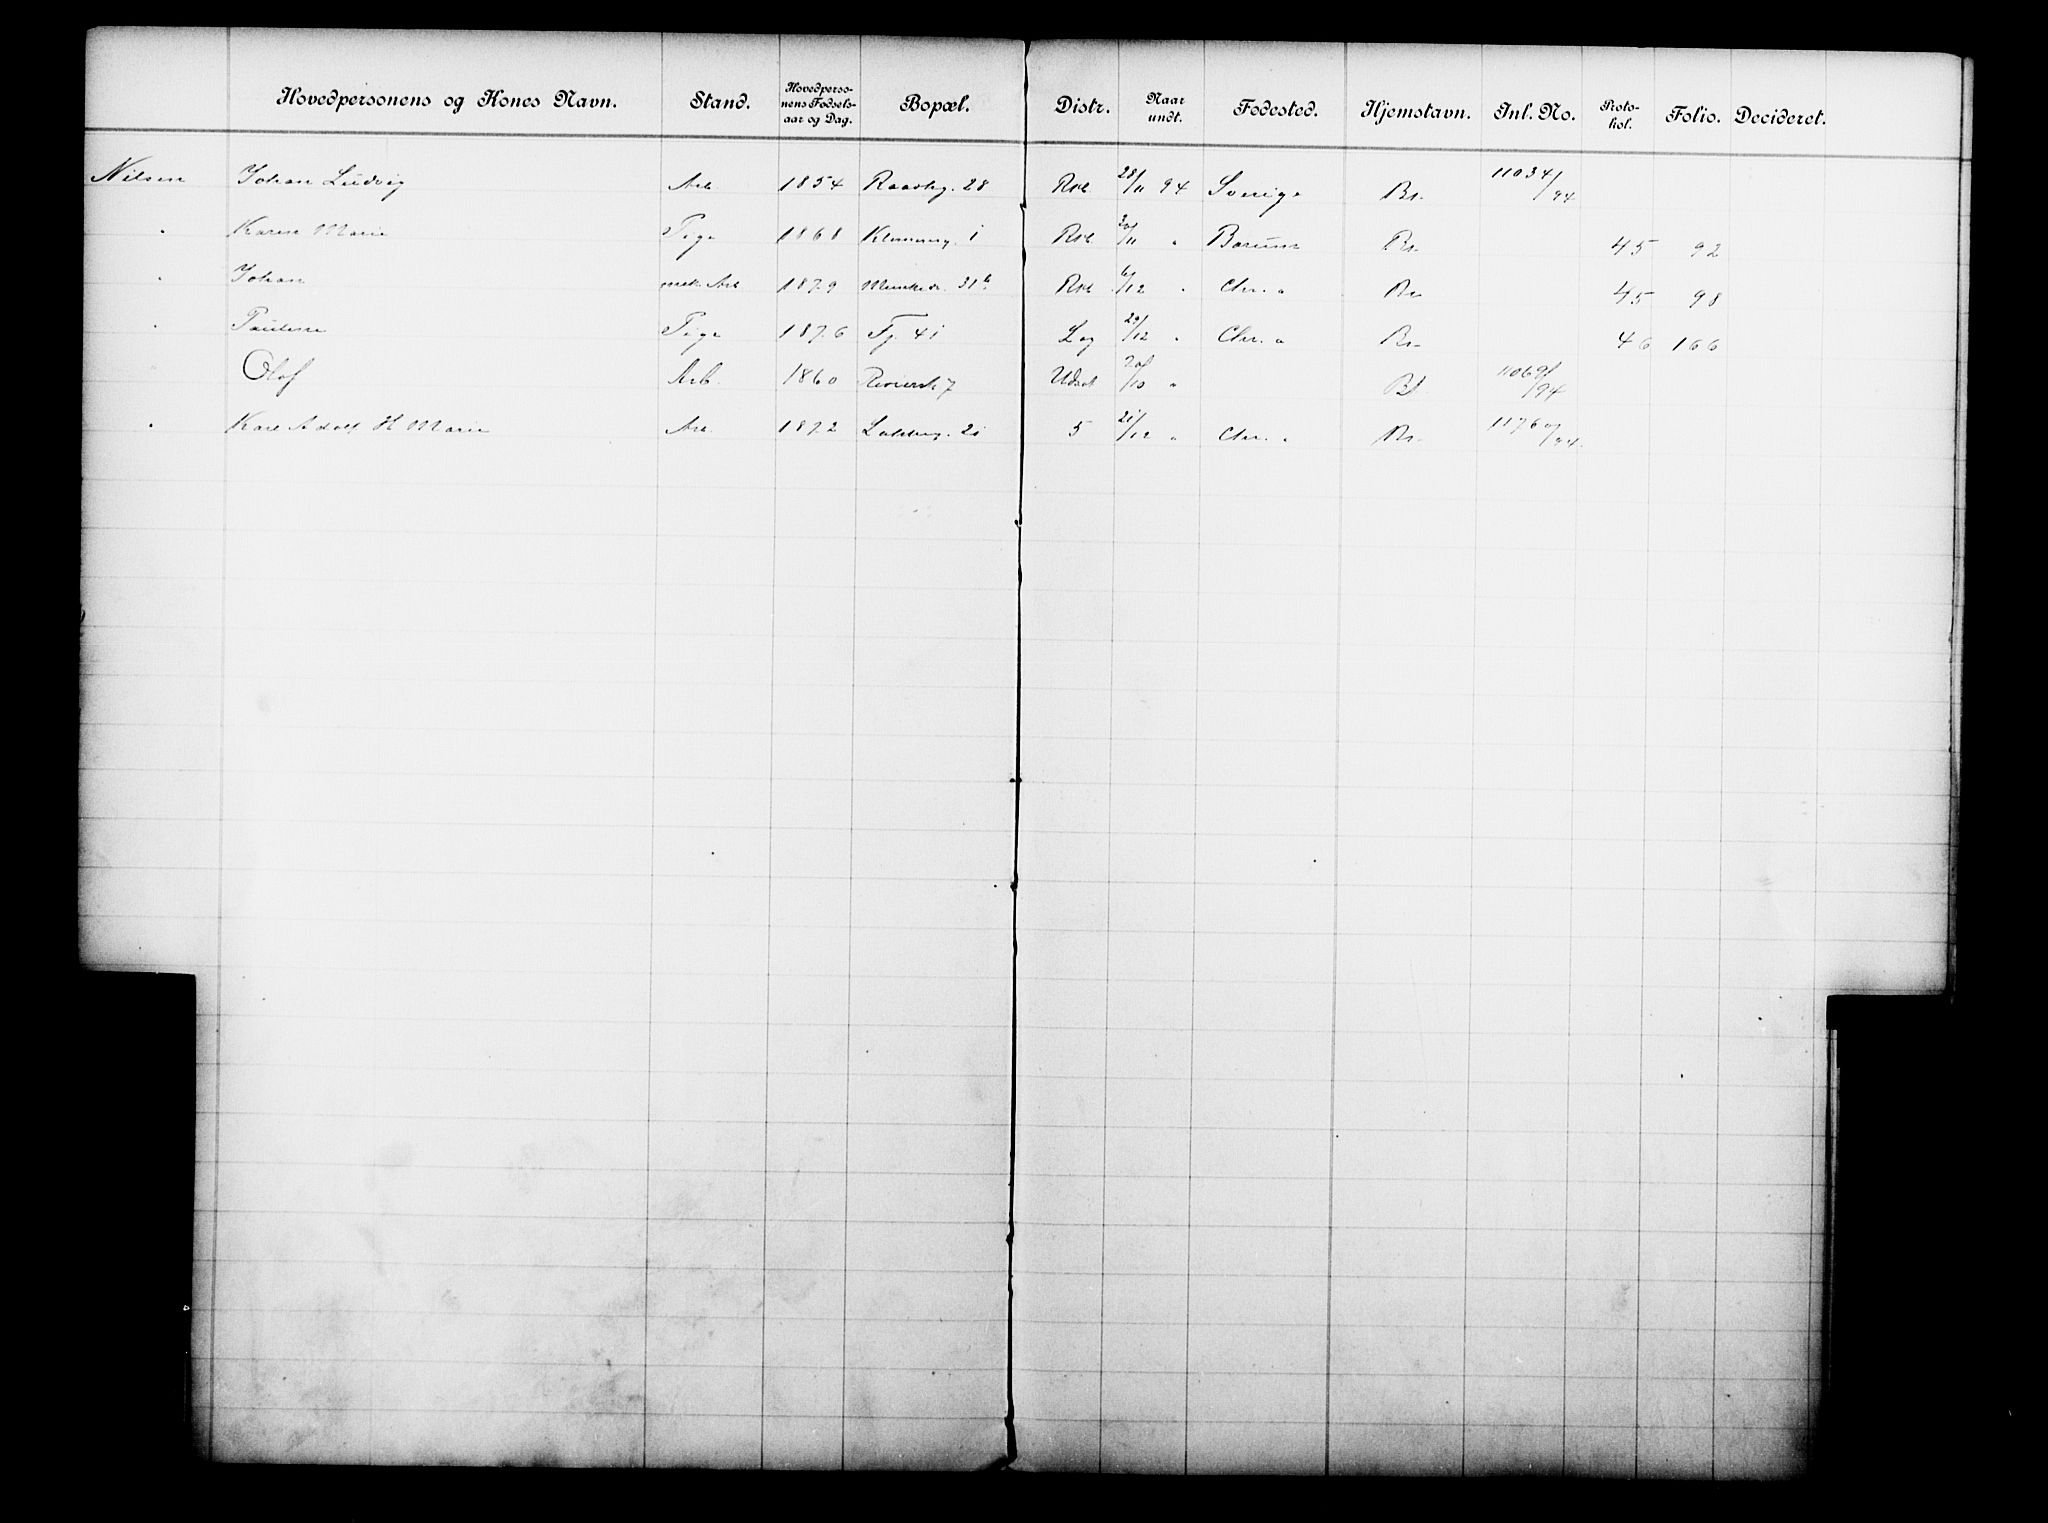 Hovedpersonens og Kones Navn. Stand. Hovedperso-nens Fødsels-aar og Dag. Bopæl. Distr. Naar undt. Fødested. Hjemstavn. Inl. No. Proto-kol. Folio. Decideret.
Nilsen Johan Ludvig Arb. 1854 28 Rod. 28/11 94 Sverige 11034/94
" Karen Marie Pige 1868 1 Rod. /11 " Bærum 45 92
" Johan mek. Arb. 1879 Rod. 6/12 " Chr. a 45 98
" Pauline Pige 1876 Fj. 41 Log 29/12 " Chr. a 46 166
" Olof Arb. 1860 7 Udsat /10 "
" Karl Adolf H Marie Arb. 1872 21 5 21/12 " Chr. a